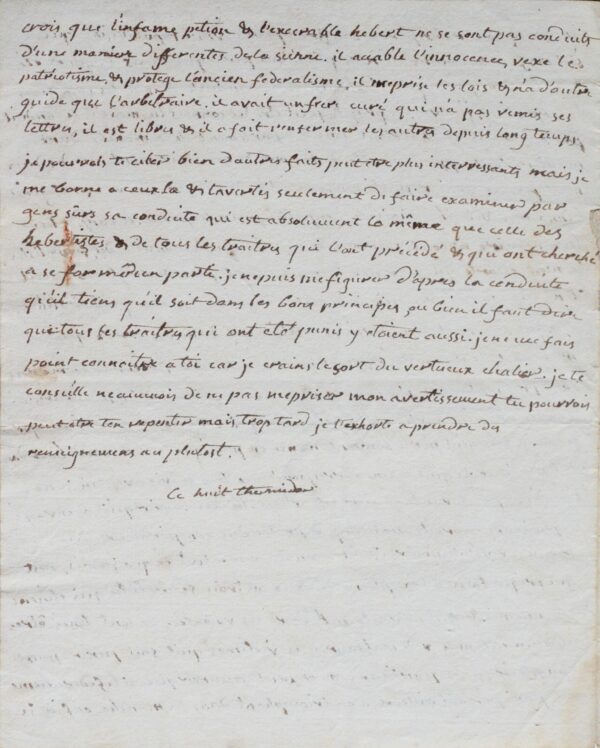 crois que l'infame petion & l'execrable hebert ne se sont pas conduits
d'une maniere differentes de la sienne, il acable l'innocence, vexe le
patriotisme & protege l'ancien federalisme, il meprise les lois & n'a d'autre
guide que l'arbitraire. il avait un frere curé qui n'a pas remis ses
lettres, il est libre & il a fait renfermer les autres depuis long temps
je pourrois te citer bien d'autres faits peut etre plus interressants mais je
me borne a ceux la & t'avertis seulement de faire examiner par
gens sûrs sa conduite qui est absolument la même que celle des
hebertistes & de tous les traitres qui l'ont précédé & qui ont cherché
a se former un parti. je ne puis me figurer d'apres la conduite
qu'il tiens qu'il soit dans les bons principes ou bien il faut dire
que tous les traitres qui ont eté punis y etaient aussi. je ne me fais
point connaitre a toi car je crains le sort du vertueux chalier. je te
conseille neanmois de ne pas mepriser mon avertissement tu pourrois
peut etre t'en repentir mais trop tard je t'exhorte a prendre des
renseignemens au plutost.
Ce huit thermidor